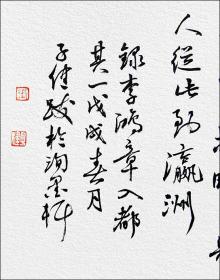 人從此到瀛洲
錄李鴻章入都
其一戊戌春月
子健跋於洵墨軒